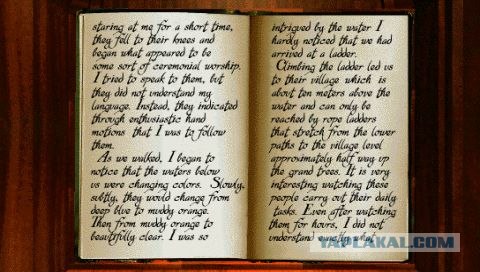 staring at me for a short time,
they fell to their knees and
began what appeared to be
some sort of ceremonial worship.
I tried to speak to them, but
they did not understand my
language. Instead, they indicated
through enthusiastic hand
motions that I was to follow
them.
As we walked, I began to
notice that the waters below
us were changing colors. Slowly,
subtly, they would change from
deep blue to muddy orange.
Then from muddy orange to
beautifully clear. I was so
intrigued by the water I
hardly noticed that we had
arrived at a ladder.
Climbing the ladder led us
to their village which is
about ten meters above the
water and can only be
reached by rope ladders
that stretch from the lower
paths to the village level
approximately half way up
the grand trees. It is very
interesting watching these
people carry out their daily
tasks. Even after watching
them for hours, I did not
understand exactly what
YAPLAKAL.COM